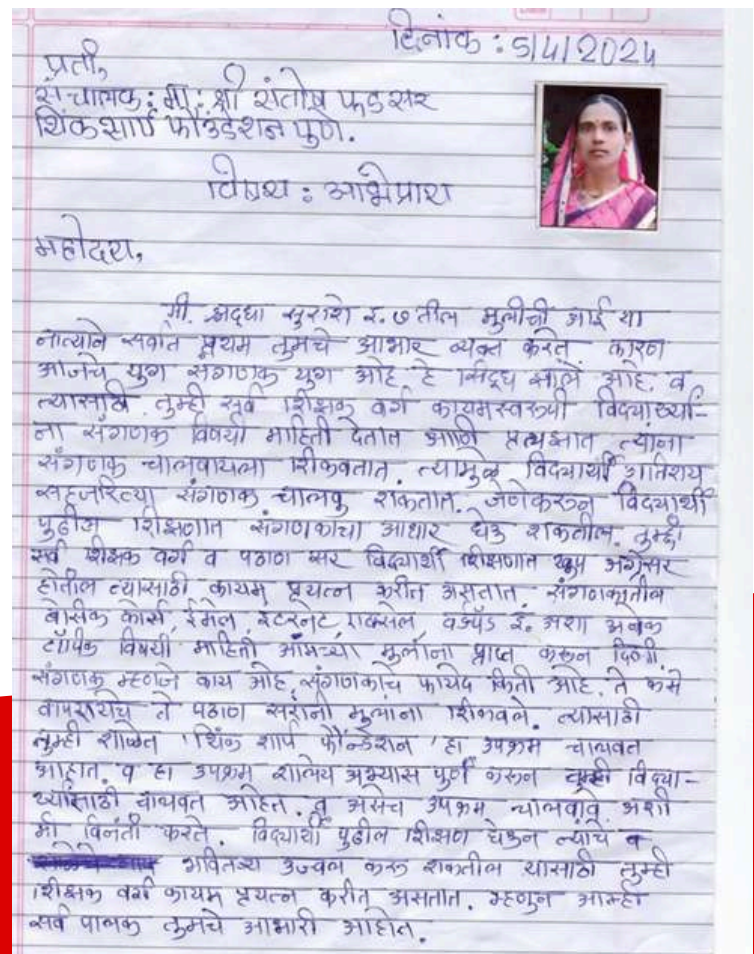 दिनांक : 5/4/2024
प्रती,
संचालक : मा. श्री संतोष फड सर
थिंकशार्प फौंउडेशन पुणे.
विषय : अभिप्राय
महोदय,
मी. श्रद्धा सुराशे इ. ७ तील मुलीची आई या
नात्याने सर्वात प्रथम तुमचे आभार व्यक्त करते. कारण
आजचे युग संगणक युग आहे. हे सिद्ध झाले आहे. व
त्यासाठी तुम्ही सर्व शिक्षक वर्ग कायमस्वरुपी विद्यार्थ्यां-
ना संगणक विषयी माहिती देतात आणि प्रत्यक्षात त्यांना
संगणक चालवायला शिकवतात. त्यामुळे विद्यार्थी अतिशय
सहजरित्या संगणक चालवु शकतात. जेणेकरुन विद्यार्थी
पुढील शिक्षणात संगणकाचा आधार घेऊ शकतील. तुम्ही
सर्व शिक्षक वर्ग व पठाण सर विद्यार्थी शिक्षणात खुप अग्रेसर
होतील त्यासाठी कायम प्रयत्न करीत असतात. संगणकातील
बेसीक कोर्स, ईमेल, इंटरनेट, एक्सेल वर्डपॅड इ. अशा अनेक
टॉपीक विषयी माहिती आमच्या मुलांना प्राप्त करुन दिली
संगणक म्हणजे काय आहे, संगणकाचे फायदे किती आहे. ते कसे
वापरायचे ते पठाण सरांनी मुलांना शिकवले. त्यासाठी
तुम्ही शाळेत 'थिंक शार्प फौन्डेशन' हा उपक्रम चालवत
आहात. व हा उपक्रम शालेय अभ्यास पुर्ण करुन विद्या-
र्थ्यांसाठी राबवत आहेत. व असेच उपक्रम चालवावे अशी
मी विनंती करते. विद्यार्थी पुढील शिक्षण घेऊन त्याचे व
भवितव्य उज्वल करु शकतील यासाठी तुम्ही
शिक्षक वर्ग कायम प्रयत्न करीत असतात. म्हणुन आम्ही
सर्व पालक तुमचे आभारी आहोत.